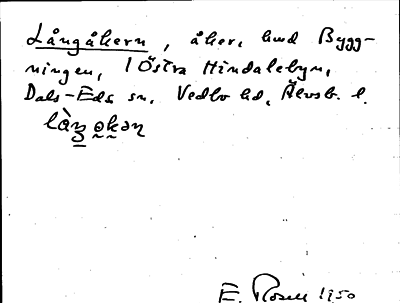 Långåkern, åker, hmd Bygg-
ningen, 1 Östra Hindalebyn,
Dals-Eds sn. Vedbo hd, Älvsb. l.
E. Rosell 1950